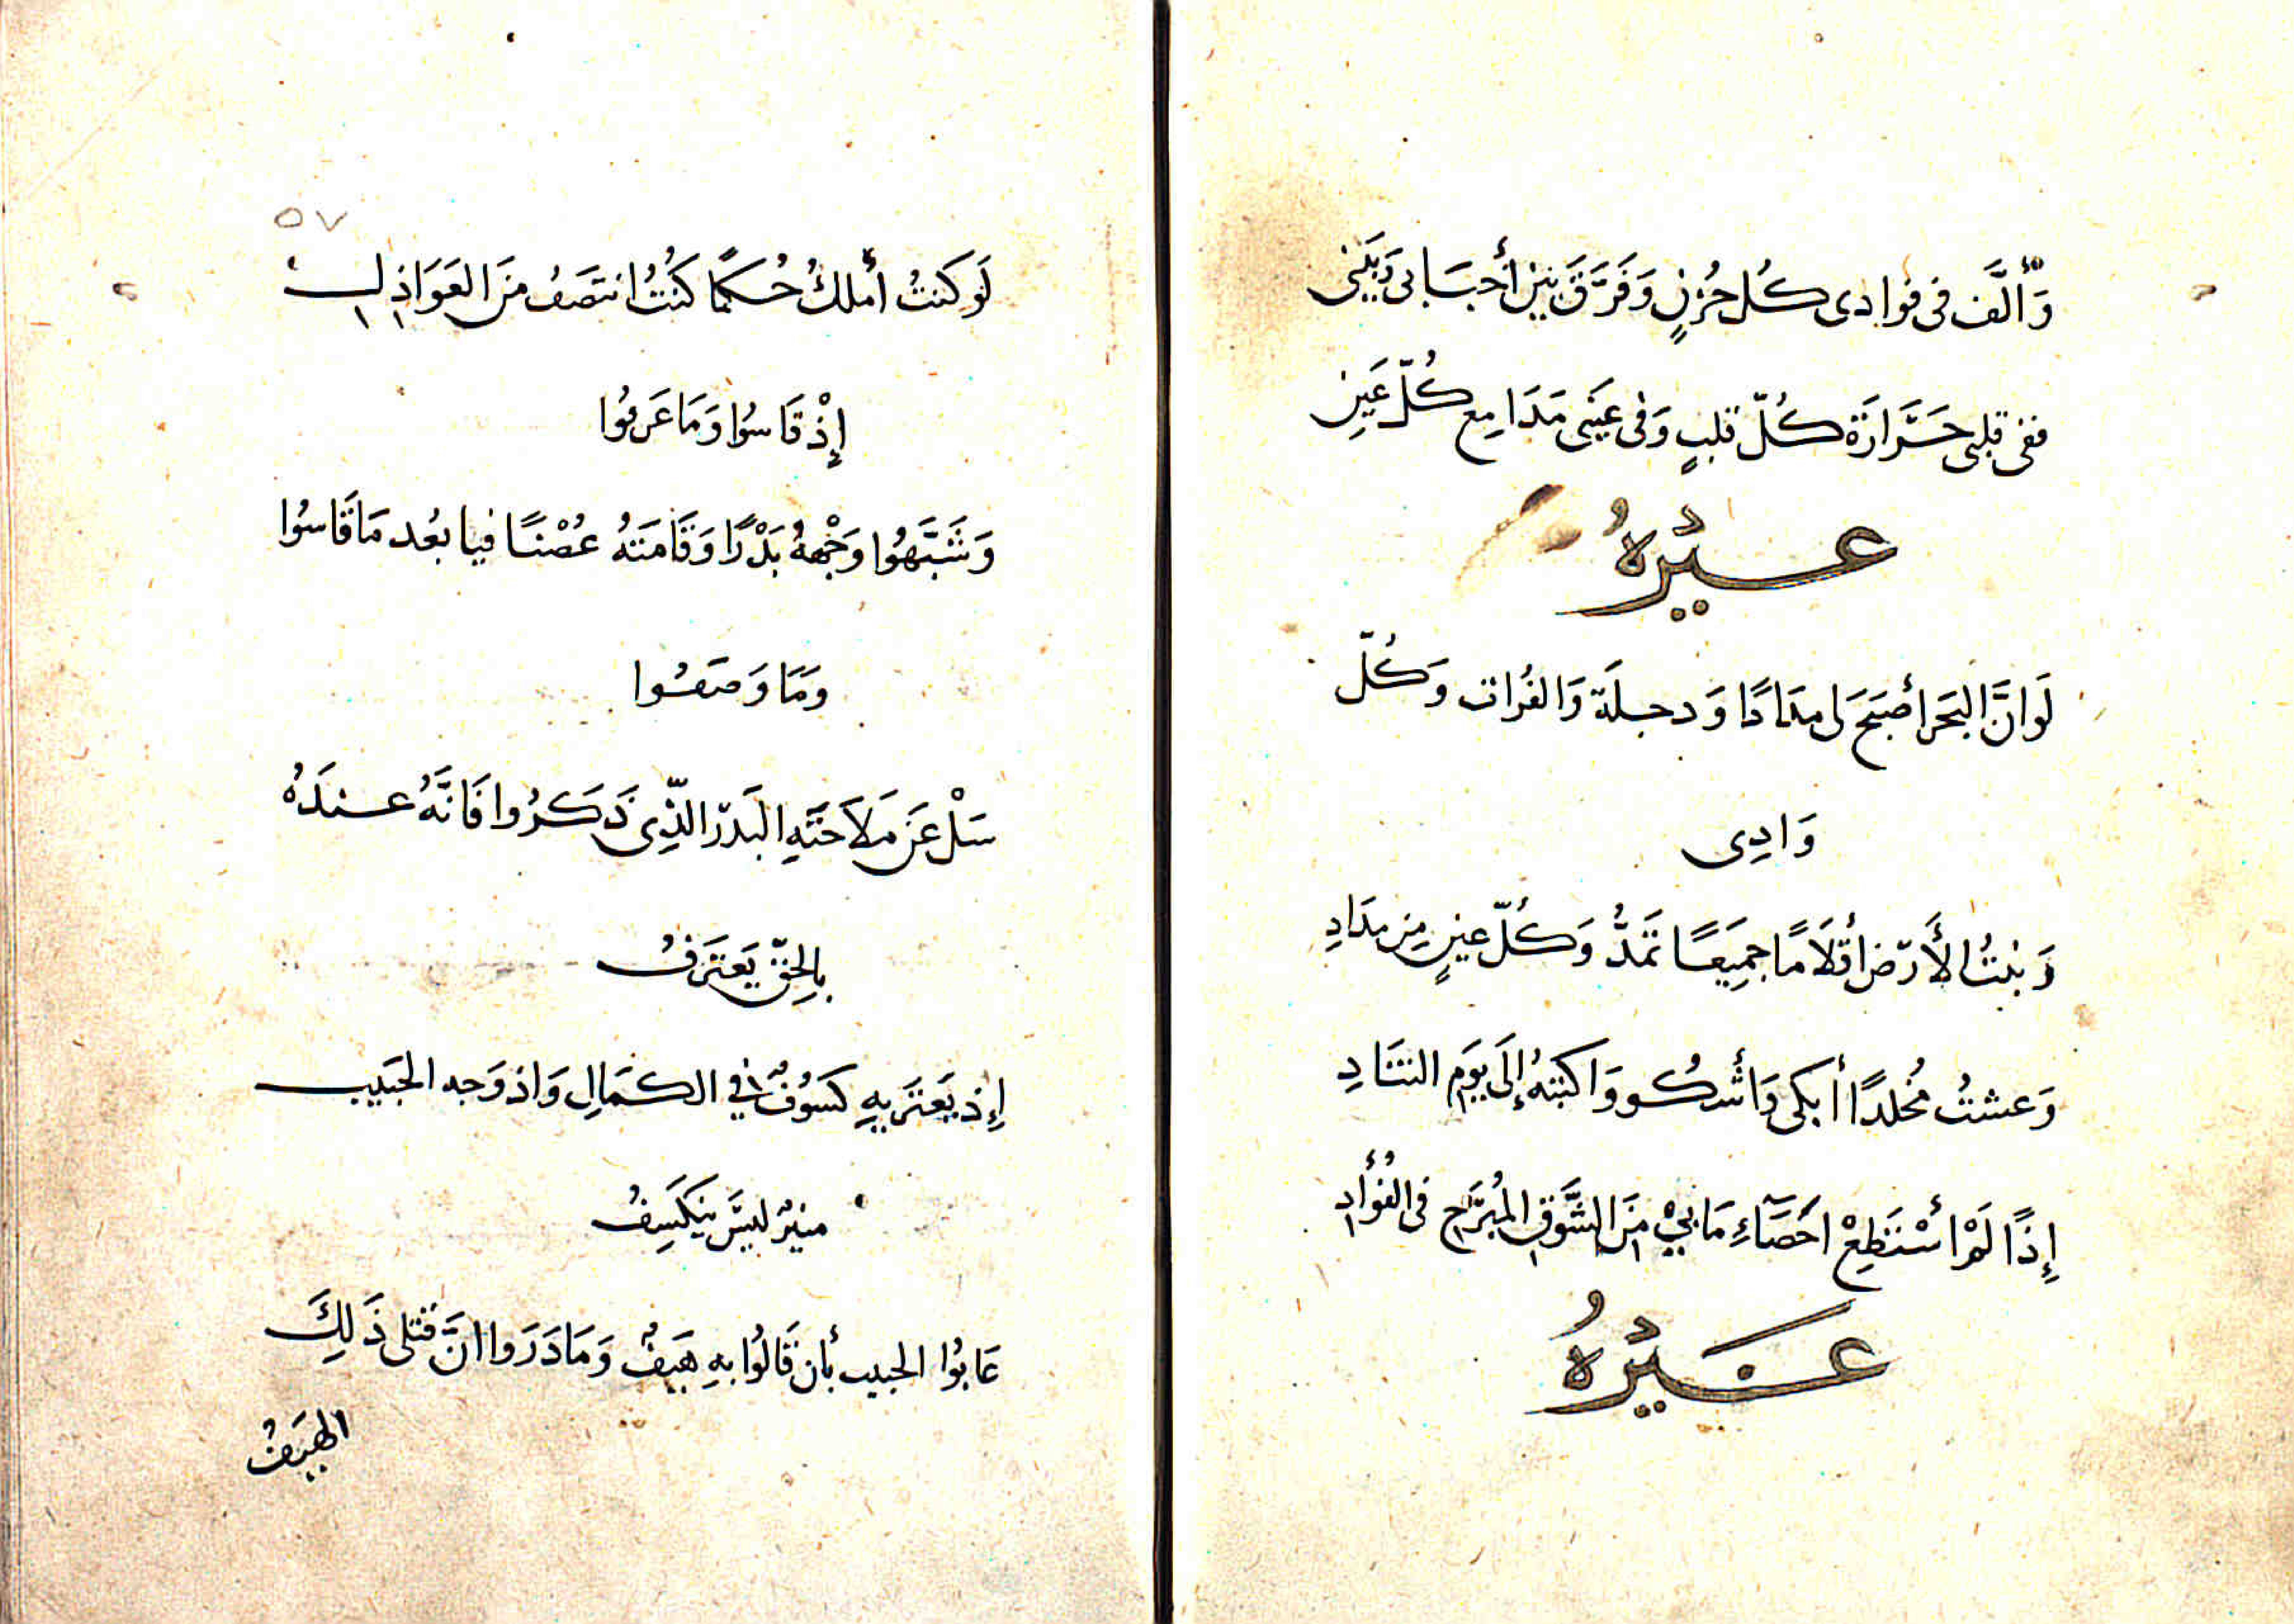 وَأَلَّف فى فوادى كُل حُزنٍ وَفَرَّقَ بين أحبَابى وَبَيْنى
ففى قلبى حَرَّارَة كُلّ قلبٍ وَفى عَيَنى مَدَامِع كُلّ عَينِ
غيْرهُ
لَوَانَّ البَحَر أصبَحَ لى مِدَادًا وَدجلَة وَالفُرات وَكُلّ
وَادِى
وَنبتُ الأَرّض أقلَامًا جمِيَعًا تمَدُّ وَكُلّ عينٍ مِن مِدَادِ
وَعشتُ مُخلدًا أبكى وَأشكُو وَاكتبهُ إلَى يَوم التنَادِ
إذًا لَمْ أسْتَطِعْ احَصَآءِ مَا بِيْ مِنَ الشَّوقِ المُبَرَّحِ فى الفُؤَادِ
غَيْرهُ
٥٧
لَو كنتُ أملكُ حُكمًا كنُتُ انتصَفُ منَ العَوَاذِلِ
إِذْ قَاسُوا وَمَا عَرَفُوا
وَشَبَّهوُا وَجْههُ بَدْرًا وَقَامَتهُ غُصْنًا فيا بعُد مَا قَاسوُا
وَمَا وَصَفُوا
سَلْ عَن مَلَاحَتَهِ البَدرّ الذِّى ذَكَرُوا فَانَّهُ عندَهُ
بِالحِقّ يَعتَرفُ
إِذ يَعتَريهِ كسَوُفٌ في الكمَالِ وَاذ وَجه الحبَيب
منيرٌ ليسَ يَنكَسِفُ
عَابوُا الحبيب بأن قَالوُا بهِ هَيَفٌ وَمَا دَرَوا انَّ قتلى ذَلِكَ
الهيَفُ